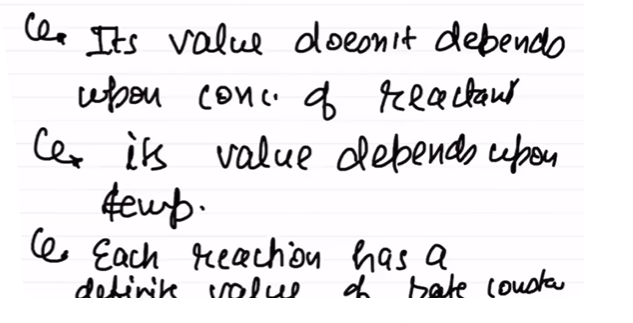 Its value doesn't depends
upon conc. of reactant
its value depends upon
temp.
Each reaction has a
definite value of rate consta